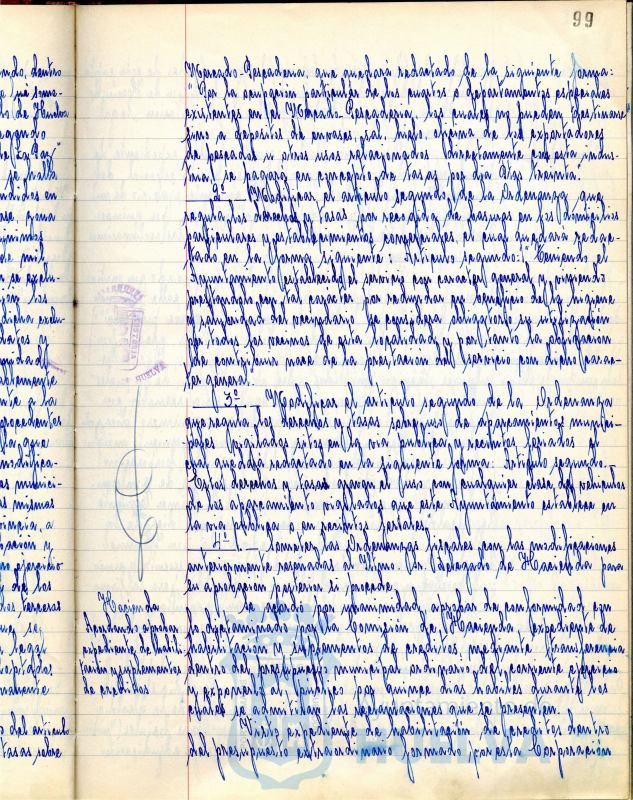 99
Mercado-Pescaderia, que quedará redactado de la siguiente forma:
"Por la ocupación particular de los puestos o departamentos especiales
existentes en el Mercado-Pescaderia, los cuales no pueden destinarse
sino a depositos de envases, sal, hielo, oficina de los exportadores
de pescados u otros usos relacionados directamente con esta indus-
tria, se pagará en concepto de tasas por dia Ptas treinta.
2º Modificar el articulo segundo de la Ordenanza que
regula los derechos y tasas por recogida de basuras en los domicilios
particulares y establecimientos comerciales, el cual quedará redac-
tado en la forma siguiente: Articulo segundo: Teniendo el
Ayuntamiento establecido el servicio con caracter general y viniendo
prestandolo con tal caracter por redundar en beneficio de la higiene
y salubridad del vecindario, se considera obligatoria su utilización
por todos los vecinos de esta localidad y por tanto la obligación
de contribuir nace de la prestación del servicio con dicho carac-
ter general.
3º Modificar el articulo segundo de la Ordenanza
que regula los derechos y tasas sobre uso de aparcamientos munici-
pales vigilados sitos en la via publica y recintos cerrados el
cual quedará redactado en la siguiente forma: Articulo segundo.
Estos derechos y tasas gravan el uso con cualquier clase de vehiculos
de los aparcamiento vigilados que este Ayuntamiento establezca en
la via publica o en recintos cerrados.
4º Someter las Ordenanzas fiscales con las modificaciones
anteriormente reseñadas al Iltmo. Sr. Delegado de Hacienda para
su aprobación posterior si procede.
Hacienda
Acordando aprobar
expediente de habili-
tación y suplementos
de creditos
Se acordó por unanimidad, aprobar de conformidad con
lo dictaminado por la Comisión de Hacienda, expediente de
habilitación y suplementos de creditos, mediante transferencia
dentro del presupuesto municipal ordinario del corriente ejercicio
y exponerlo al publico por quince dias habiles durante los
cuales se admitiran las reclamaciones que se presenten.
Visto expediente de habilitación de creditos dentro
del presupuesto extraordinario formado por esta Corporación
HUELVA